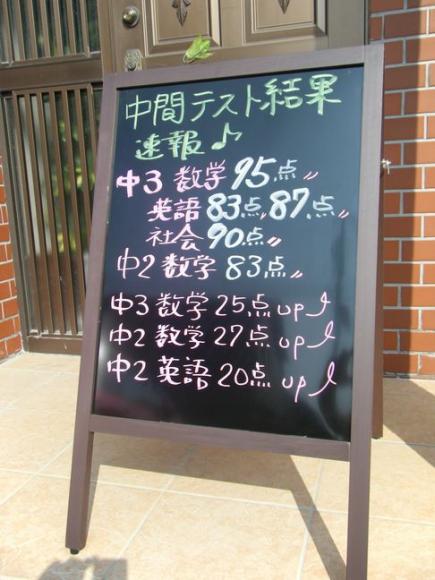 中間テスト結果
速報♪
中3 数学 95点〃
英語 83点〃87点〃
社会 90点〃
中2 数学 83点〃
中3 数学 25点up↑
中2 数学 27点up↑
中2 英語 20点up↑